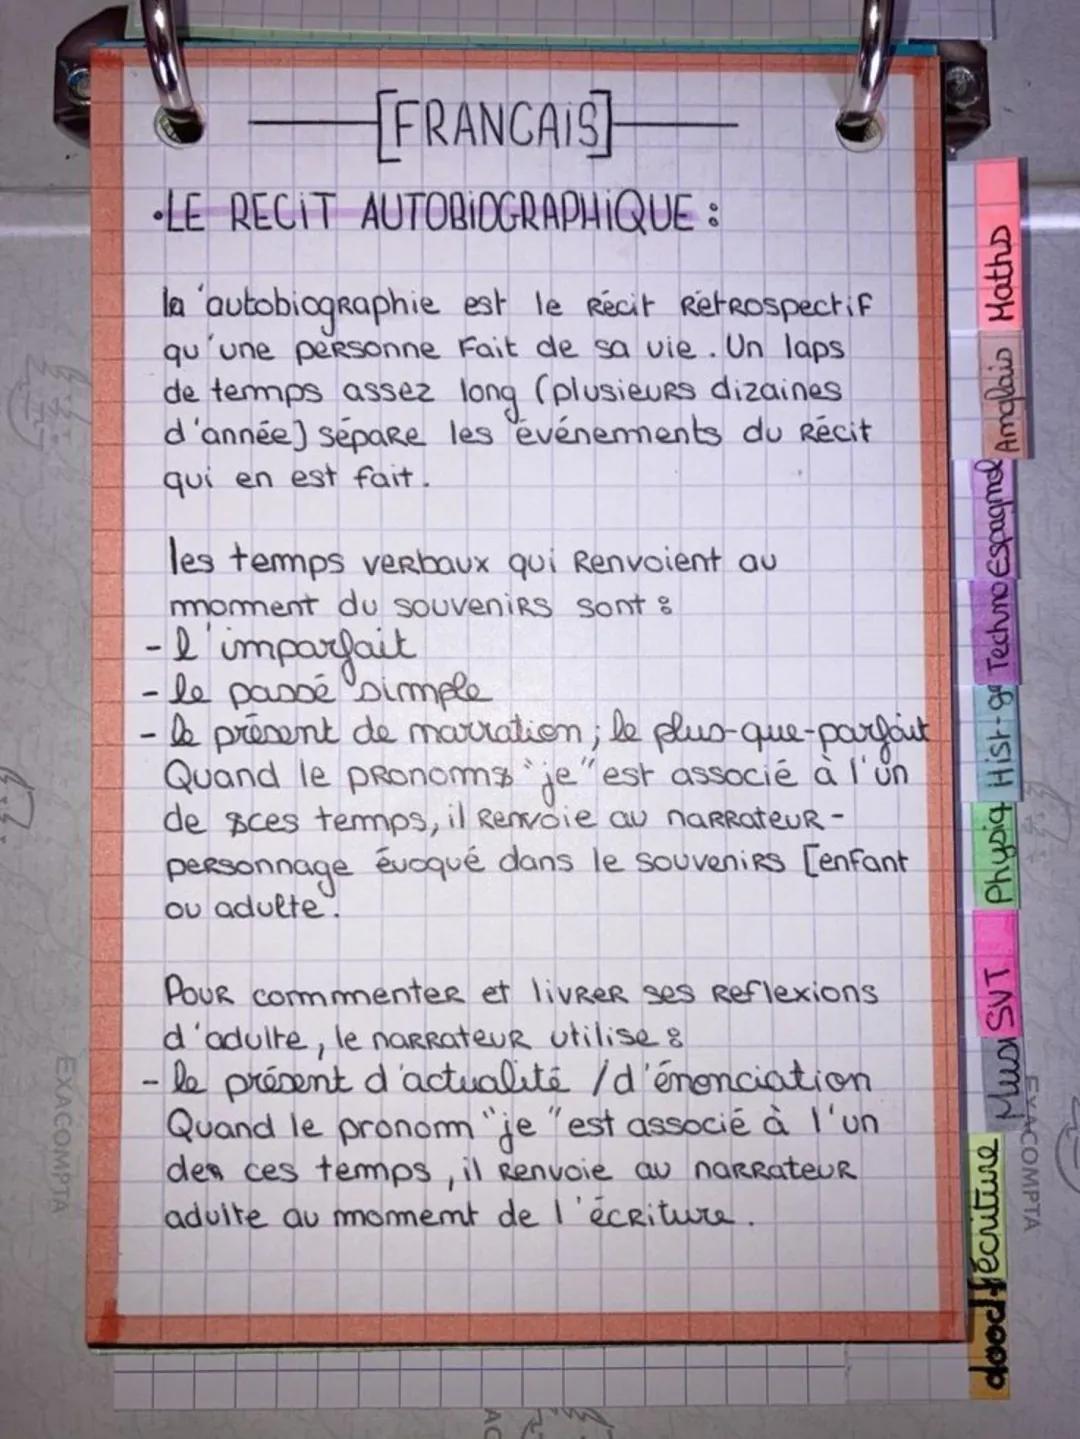 [FRANCAIS]
•LE RECIT AUTOBIOGRAPHIQUE :
la 'autobiographie est le récit rétrospectif
qu'une personne fait de sa vie. Un laps
de temps assez long (plusieurs dizaines
d'année) sépare les événements du récit
qui en est fait.
les temps verbaux qui renvoient au
moment du souvenirs sont :
- l'imparfait
- le passé simple
- le présent de narration ; le plus-que-parfait
Quand le pronoms "je" est associé à l'un
de ces temps, il renvoie au narrateur-
personnage évoqué dans le souvenirs [enfant
ou adulte.
Pour commenter et livrer ses reflexions
d'adulte, le narrateur utilise :
- le présent d'actualité / d'énonciation
Quand le pronom "je" est associé à l'un
des ces temps, il renvoie au narrateur
adulte au momemt de l'écriture.
Maths
Anglais
Espagnol
Techno
Hist-g
Physiq
SVT
Musi
écriture
EXACOMPTA
EXACOMPTA
AC